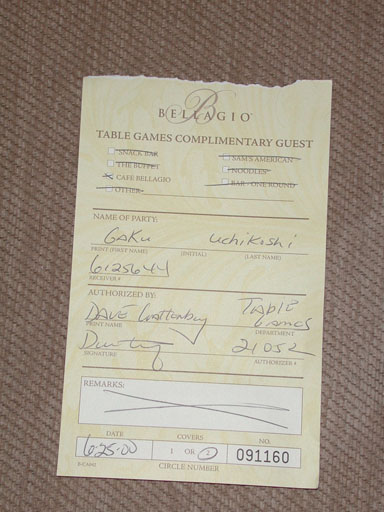 B
BELLAGIO
TABLE GAMES COMPLIMENTARY GUEST
SNACK BAR
SAM'S AMERICAN
THE BUFFET
NOODLES
CAFÉ BELLAGIO
BAR - ONE ROUND
OTHER
NAME OF PARTY:
GAKU Uchikoshi
PRINT (FIRST NAME) (INITIAL) (LAST NAME)
6125644
RECEIVER #
AUTHORIZED BY:
DAVE TABLE GAMES
PRINT NAME DEPARTMENT
21052
SIGNATURE AUTHORIZER #
REMARKS:
DATE COVERS NO.
6-25-00 1 OR 2 091160
CIRCLE NUMBER